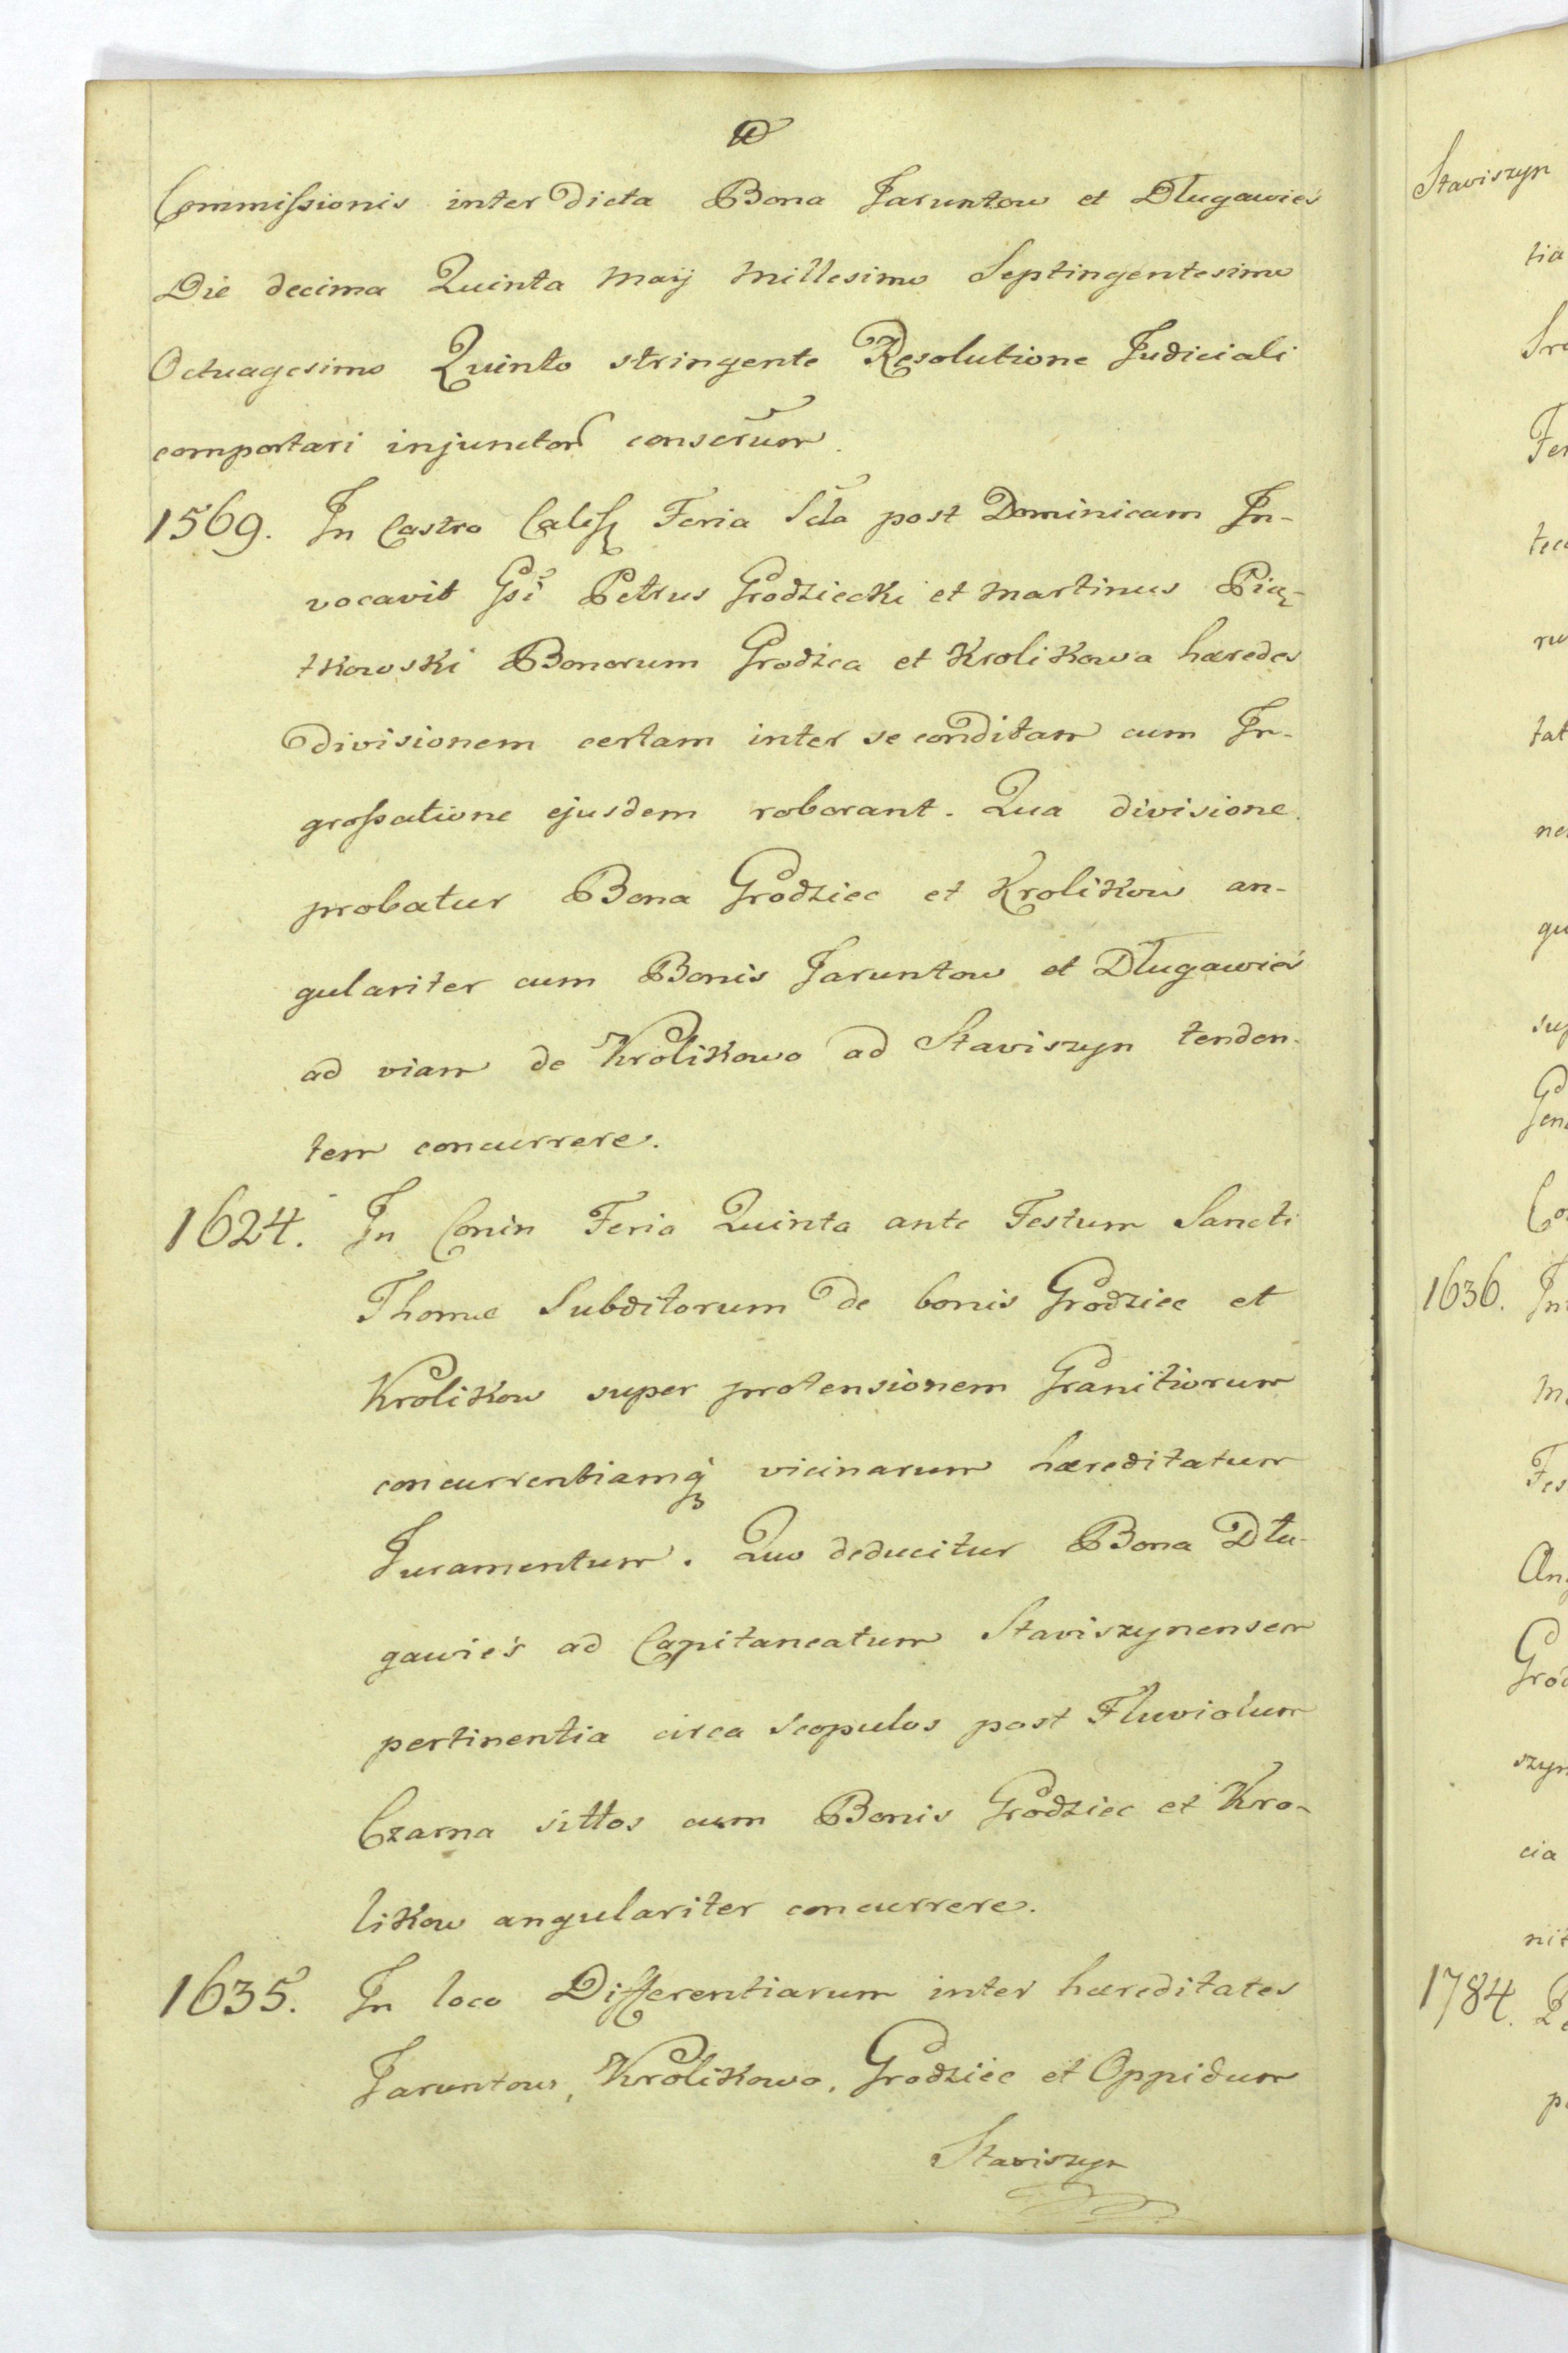 Commissionis inter dicta Bona Jaruntow et Długawieś
Die decima Quinta Maij Millesimo Septingentesimo
Octuagesimo Quinto stringente Resolutione Judiciali
comportari injunctor conserum.
1569. In Castro Calisz Feria Scda post Dominicam In-
vocavit Gsi Petrus Grodziecki et Martinus Pią-
tkowski Bonorum Grodzca et Krolikowa hæredes
divisionem certam inter se conditam cum In-
grossatione ejusdem roborant. Qua divisione
probatur Bona Grodziec et Krolikow an-
gulariter cum Bonis Jaruntow et Długawieś
ad viam de Krolikowo ad Staviszyn tenden-
tem concurrere.
1624. In Conin Feria Quinta ante Festum Sancti
Thomæ Subditorum de bonis Grodziec et
Krolikow super protensionem Granitiorum
concurrentiamq vicinarum hæreditatum
Juramentum. Quo deducitur Bona Dłu-
gawieś ad Capitaneatum Staviszynensem
pertinentia circa scopulos post Fluviolum
Czarna sittos cum Bonis Grodziec et Kro-
likow angulariter concurrere.
1635. In loco Differentiarum inter hæreditates
Jaruntow, Krolikowo, Grodziec et Oppidum
Staviszyn
Staviszyn
tia
ru
tat
1636.
1784.